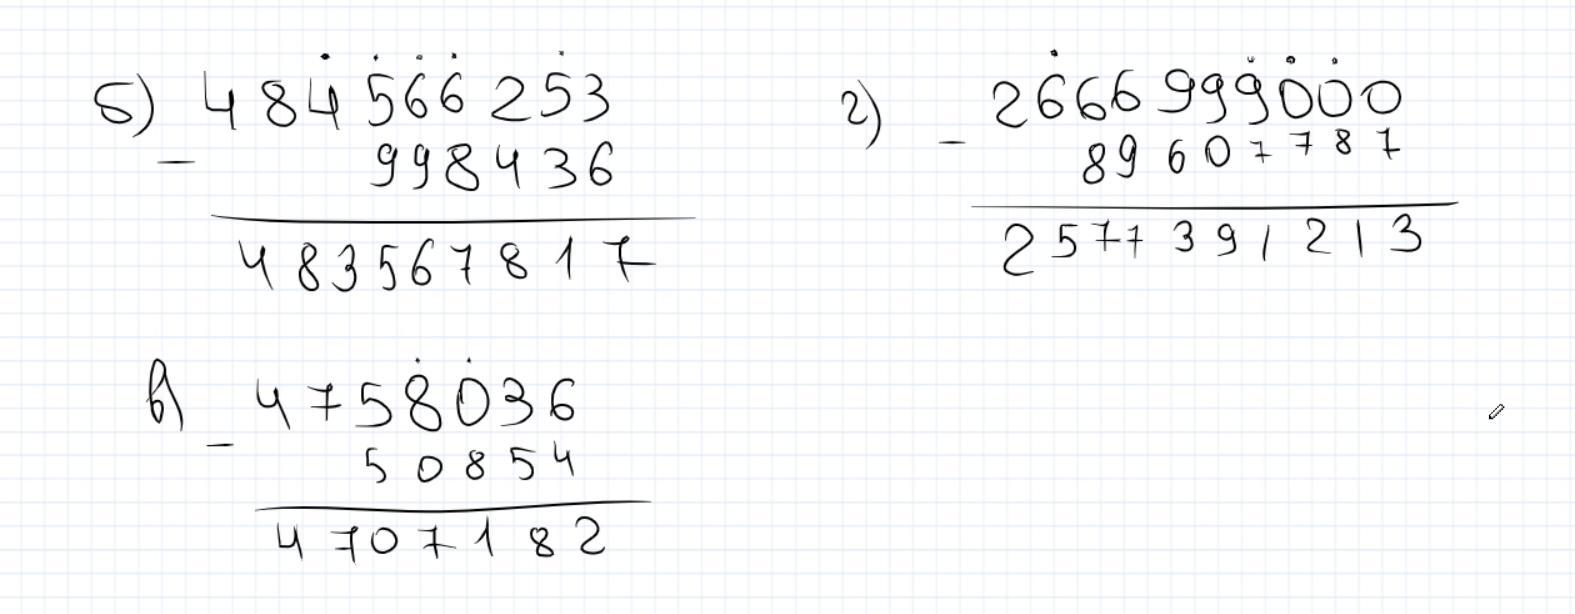 б) 484566253
- 998436
483567817
г) 2666999000
- 89607787
2577391213
в) 4758036
- 50854
4707182